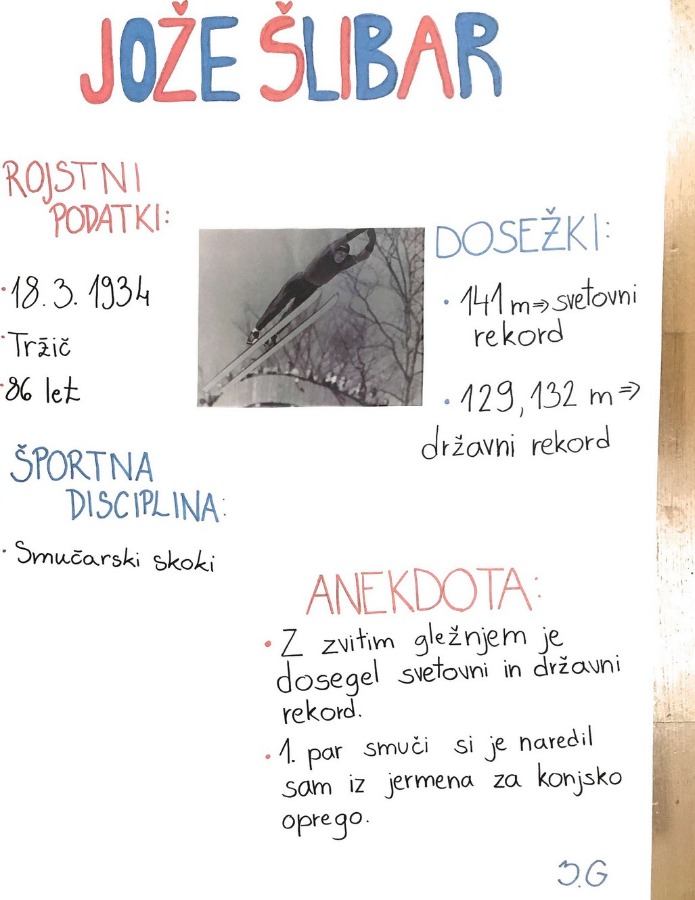 JOŽE ŠLIBAR
ROJSTNI
PODATKI:
· 18. 3. 1934
· Tržič
· 86 let
ŠPORTNA
DISCIPLINA:
· Smučarski skoki
DOSEŽKI:
· 141 m ⇒ svetovni
rekord
· 129, 132 m ⇒
državni rekord
ANEKDOTA:
· Z zvitim gležnjem je
dosegel svetovni in državni
rekord.
· 1. par smuči si je naredil
sam iz jermena za konjsko
oprego.
J.G